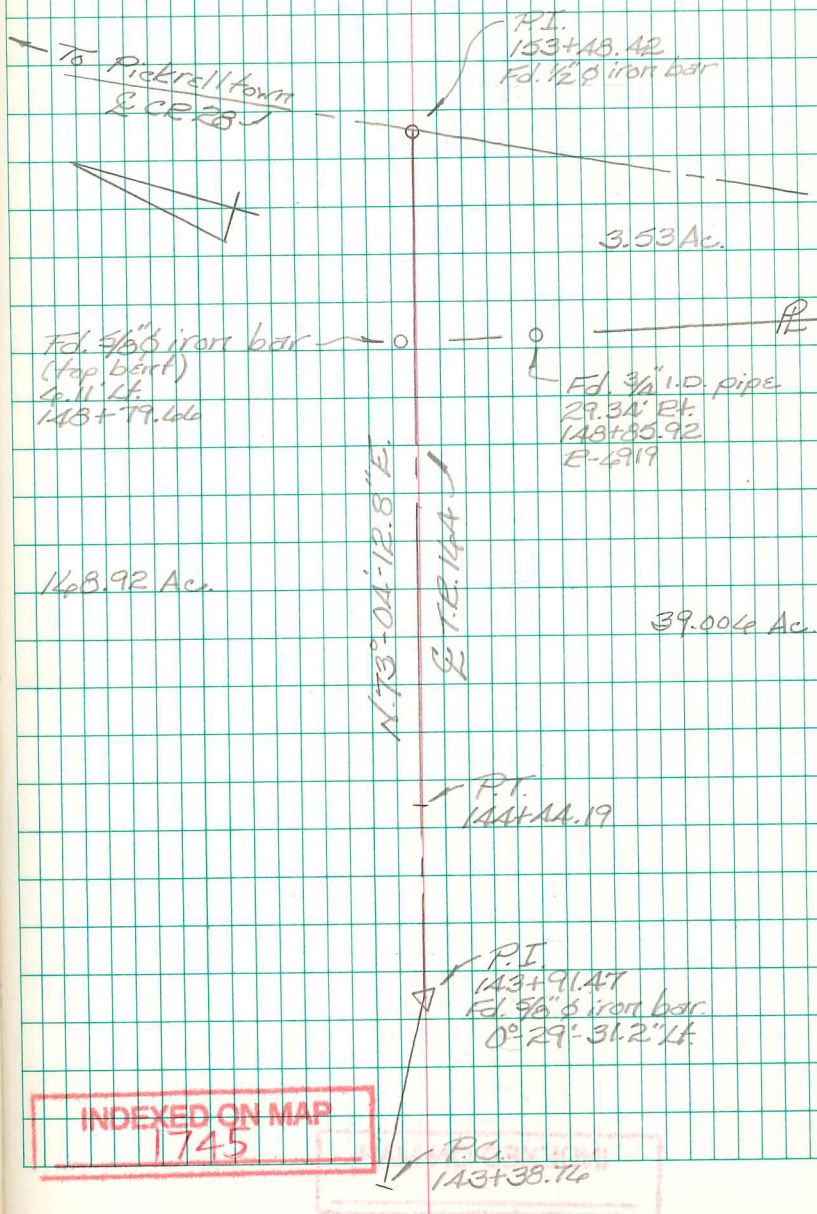 P.I.
153+48.42
Fd. 1/2"ø iron bar
To Pickrelltown
℄ CR 28
3.53 Ac.
Fd. 5/8"ø iron bar
(top bent)
6.11' Lt.
148+79.66
℄
Fd. 3/4" I.D. pipe
29.34' Rt.
148+85.92
R-6919
N.73°-04'-12.8"E.
℄ T.R. 164
168.92 Ac.
39.006 Ac.
P.T.
144+44.19
P.I.
143+91.47
Fd. 5/8"ø iron bar.
0°-29'-31.2" Lt.
INDEXED ON MAP
1745
P.C.
143+38.76